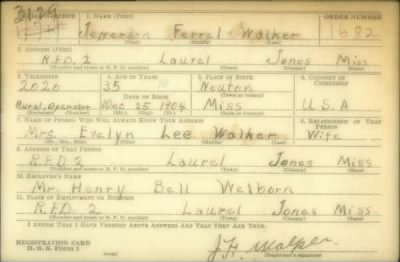 3129
SERIAL NUMBER 1. NAME (Print) ORDER NUMBER
Jefferson Ferrel Walker 1682
(First) (Middle) (Last)
2. ADDRESS (Print)
R.F.D. 2 Laurel Jones Miss
(Number and street or R. F. D. number) (Town) (County) (State)
3. TELEPHONE 4. AGE IN YEARS 5. PLACE OF BIRTH 6. COUNTRY OF CITIZENSHIP
2026 35 Newton
DATE OF BIRTH (Town or county)
Rural, Operator Dec 25 1904 Miss U.S.A
(Exchange) (Number) (Mo.) (Day) (Yr.) (State or country)
7. NAME OF PERSON WHO WILL ALWAYS KNOW YOUR ADDRESS 8. RELATIONSHIP OF THAT PERSON
Mrs. Evelyn Lee Walker Wife
(Mr., Mrs., Miss) (First) (Middle) (Last)
9. ADDRESS OF THAT PERSON
R.F.D 2 Laurel Jones Miss
(Number and street or R. F. D. number) (Town) (County) (State)
10. EMPLOYER'S NAME
Mr. Henry Bell Welborn
11. PLACE OF EMPLOYMENT OR BUSINESS
R.F.D. 2 Laurel Jones Miss.
(Number and street or R. F. D. number) (Town) (County) (State)
I AFFIRM THAT I HAVE VERIFIED ABOVE ANSWERS AND THAT THEY ARE TRUE.
REGISTRATION CARD
D. S. S. Form 1 (over) (Registrant's signature)
Walker